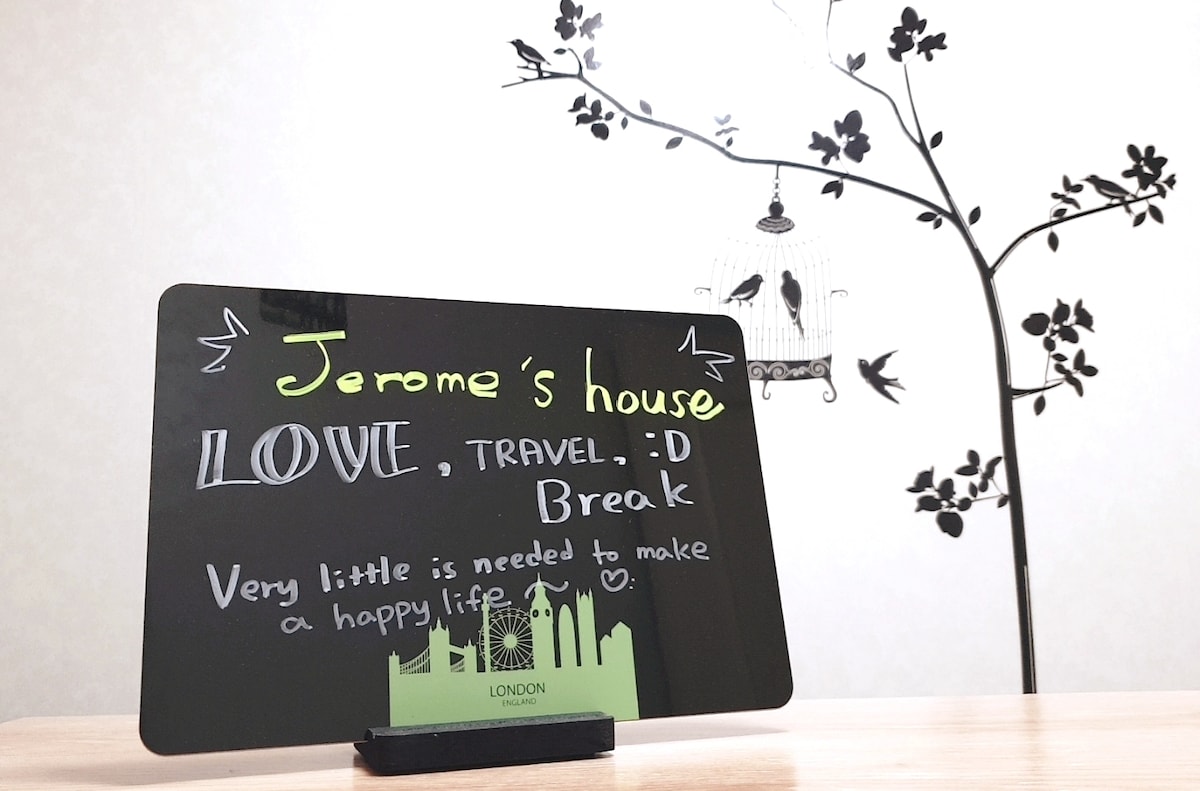 Jerome's house
LOVE, TRAVEL, :D
Break
Very little is needed to make
a happy life ~ ♡:
LONDON
ENGLAND